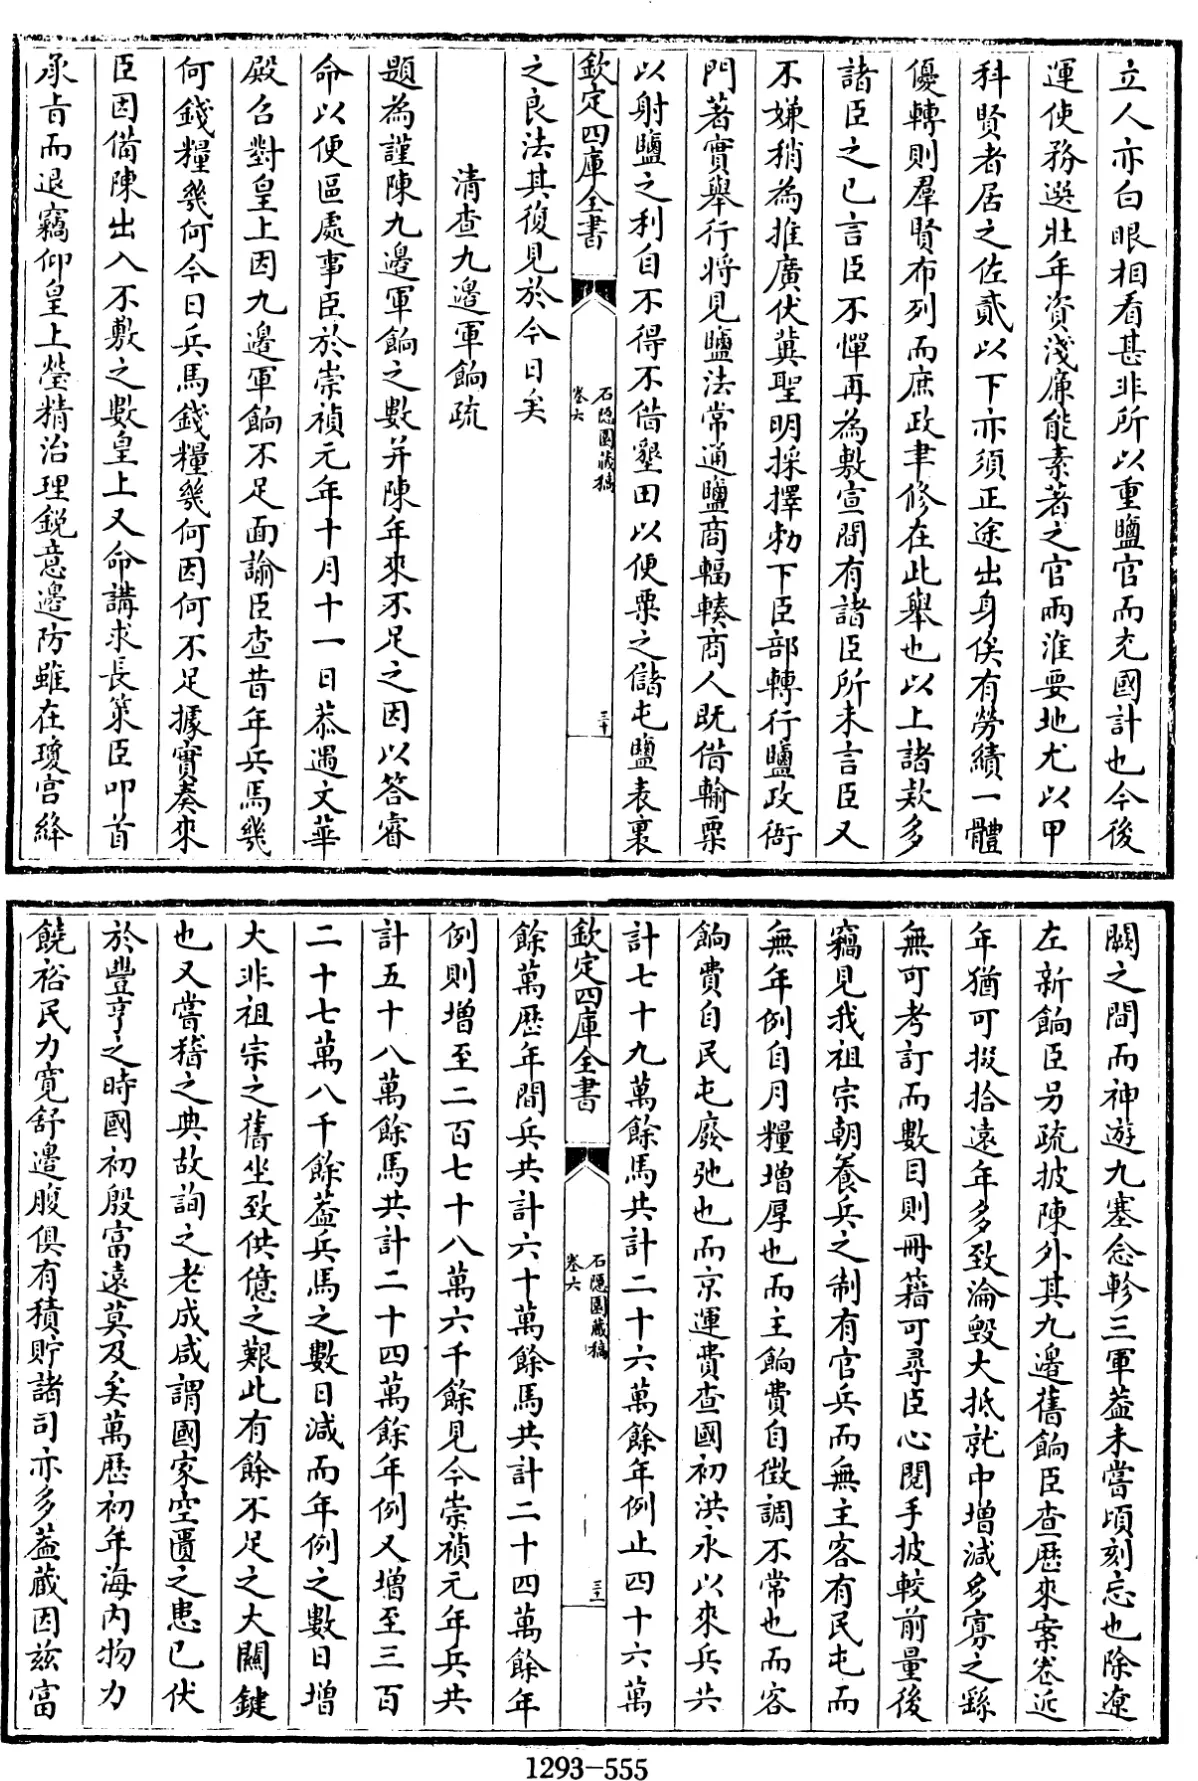 立人亦白眼相看甚非所以重鹽官而充國計也今後
運使務選壯年資淺廉能素著之官兩淮要地尤以甲
科賢者居之佐貳以下亦須正途出身俟有勞績一體
優轉則羣賢布列而庶政聿修在此舉也以上諸款多
諸臣之已言臣不憚再為敷宣間有諸臣所未言臣又
不嫌稍為推廣伏冀聖明採擇勑下臣部轉行鹽政衙
門著實舉行將見鹽法常通鹽商輻輳商人既借輸粟
以射鹽之利自不得不借墾田以便粟之儲屯鹽表裏
欽定四庫全書
石隱園藏稿
卷六
三十
之良法其復見於今日矣
清查九邊軍餉疏
題為謹陳九邊軍餉之數并陳年來不足之因以答睿
命以便區處事臣於崇禎元年十月十一日恭遇文華
殿召對皇上因九邊軍餉不足面諭臣查昔年兵馬幾
何錢糧幾何今日兵馬錢糧幾何因何不足據實奏來
臣因備陳出入不敷之數皇上又命講求長策臣叩首
承旨而退竊仰皇上瑩精治理銳意邊防雖在瓊宮絳
闕之間而神遊九塞念軫三軍葢未嘗頃刻忘也除遼
左新餉臣另疏披陳外其九邊舊餉臣查歷來案卷近
年猶可掇拾遠年多致淪毀大抵就中增減多寡之繇
無可考訂而數目則冊籍可尋臣心閱手披較前量後
竊見我祖宗朝養兵之制有官兵而無主客有民屯而
無年例自月糧增厚也而主餉費自徵調不常也而客
餉費自民屯廢弛也而京運費查國初洪永以來兵共
計七十九萬餘馬共計二十六萬餘年例止四十六萬
欽定四庫全書
石隱園藏稿
卷六
三十一
餘萬歷年間兵共計六十萬餘馬共計二十四萬餘年
例則增至二百七十八萬六千餘見今崇禎元年兵共
計五十八萬餘馬共計二十四萬餘年例又增至三百
二十七萬八千餘葢兵馬之數日減而年例之數日增
大非祖宗之舊坐致供億之艱此有餘不足之大關鍵
也又嘗稽之典故詢之老成咸謂國家空匱之患已伏
於豐亨之時國初殷富遠莫及矣萬歷初年海內物力
饒裕民力寬舒邊腹俱有積貯諸司亦多葢藏因茲富
1293-555